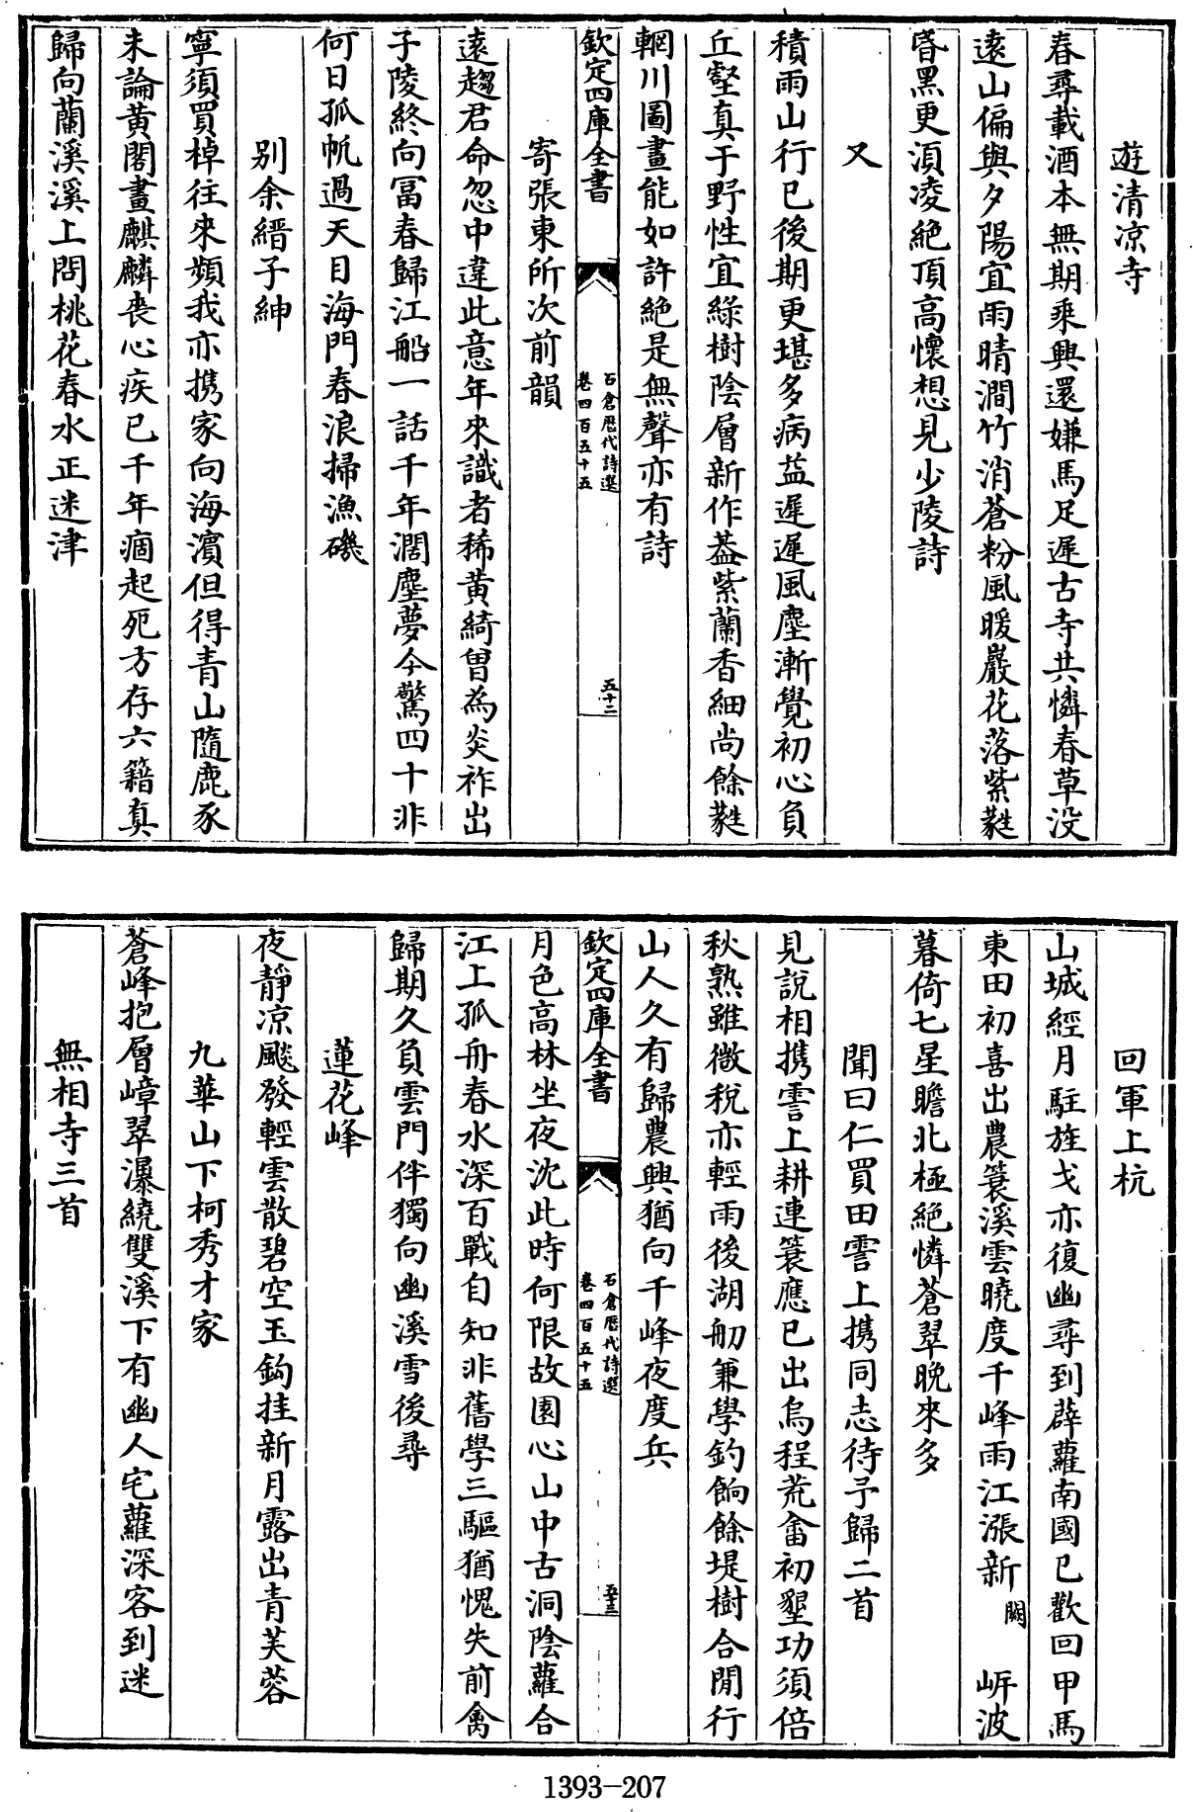 遊清凉寺
春尋載酒本無期乘興還嫌馬足遲古寺共憐春草没
遠山偏與夕陽宜雨晴澗竹消蒼粉風暖巖花落紫蕤
昏黑更湏凌絶頂高懷想見少陵詩
又
積雨山行已後期更堪多病益遲遲風塵漸覺初心負
丘壑真于野性宜綠樹陰層新作葢紫蘭香細尚餘蕤
輞川圖畫能如許絶是無聲亦有詩
欽定四庫全書
石倉歴代詩選
卷四百五十五
五十二
寄張東所次前韻
遠趨君命忽中違此意年來識者稀黄綺曽為炎祚出
子陵終向富春歸江船一話千年濶塵夢今驚四十非
何日孤帆過天目海門春浪掃漁磯
别余縉子紳
寧須買棹往來頻我亦携家向海濵但得青山隨鹿豕
未論黄閣畫麒麟喪心疾已千年痼起死方存六籍真
歸向蘭溪溪上問桃花春水正迷津
回軍上杭
山城經月駐旌戈亦復幽尋到薜蘿南國已歡回甲馬
東田初喜出農簑溪雲曉度千峰雨江漲新闕㟁波
暮倚七星瞻北極絶憐蒼翠晚來多
聞曰仁買田霅上携同志待予歸二首
見說相携霅上耕連簑應已出烏程荒畬初墾功須倍
秋熟雖微税亦輕雨後湖舠兼學釣餉餘堤樹合閒行
山人久有歸農興猶向千峰夜度兵
欽定四庫全書
石倉歴代詩選
卷四百五十五
五十三
月色高林坐夜沈此時何限故園心山中古洞陰蘿合
江上孤舟春水深百戰自知非舊學三驅猶愧失前禽
歸期久負雲門伴獨向幽溪雪後尋
蓮花峰
夜靜凉飈發輕雲散碧空玉鈎挂新月露出青芙蓉
九華山下柯秀才家
蒼峰抱層嶂翠瀑繞雙溪下有幽人宅蘿深客到迷
無相寺三首
1393-207